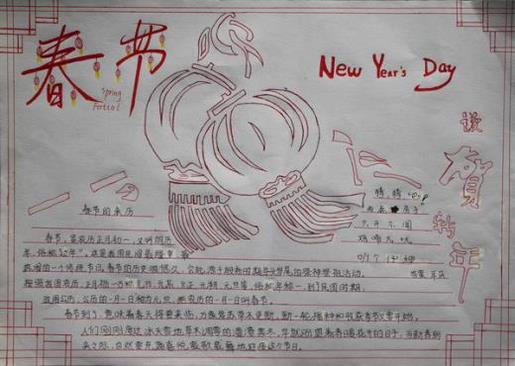 春节
Spring
Festival
New Year's Day
谨
贺
新
年
春节的来历
春节,是农历正月初一,又叫阴历
年,俗称"过年"。这是我国民间最隆重、最
热闹的一个传统节日。春节的历史很悠久,它起源于殷商时期年头岁尾的祭神祭祖活动。
按照我国农历,正月初一古称元日、元辰、元正、元朔、元旦等,俗称年初一,到了民国时期,
改用公历,公历的一月一日称为元旦,把农历的一月一日叫春节。
春节到了,意味着春天将要来临,万象复苏草木更新,新一轮播种和收获季节又要开始。
人们刚刚度过冰天雪地草木凋零的漫漫寒冬,早就盼望着春暖花开的日子,当新春到
来之际,自然要充满喜悦载歌载舞地迎接这个节日。